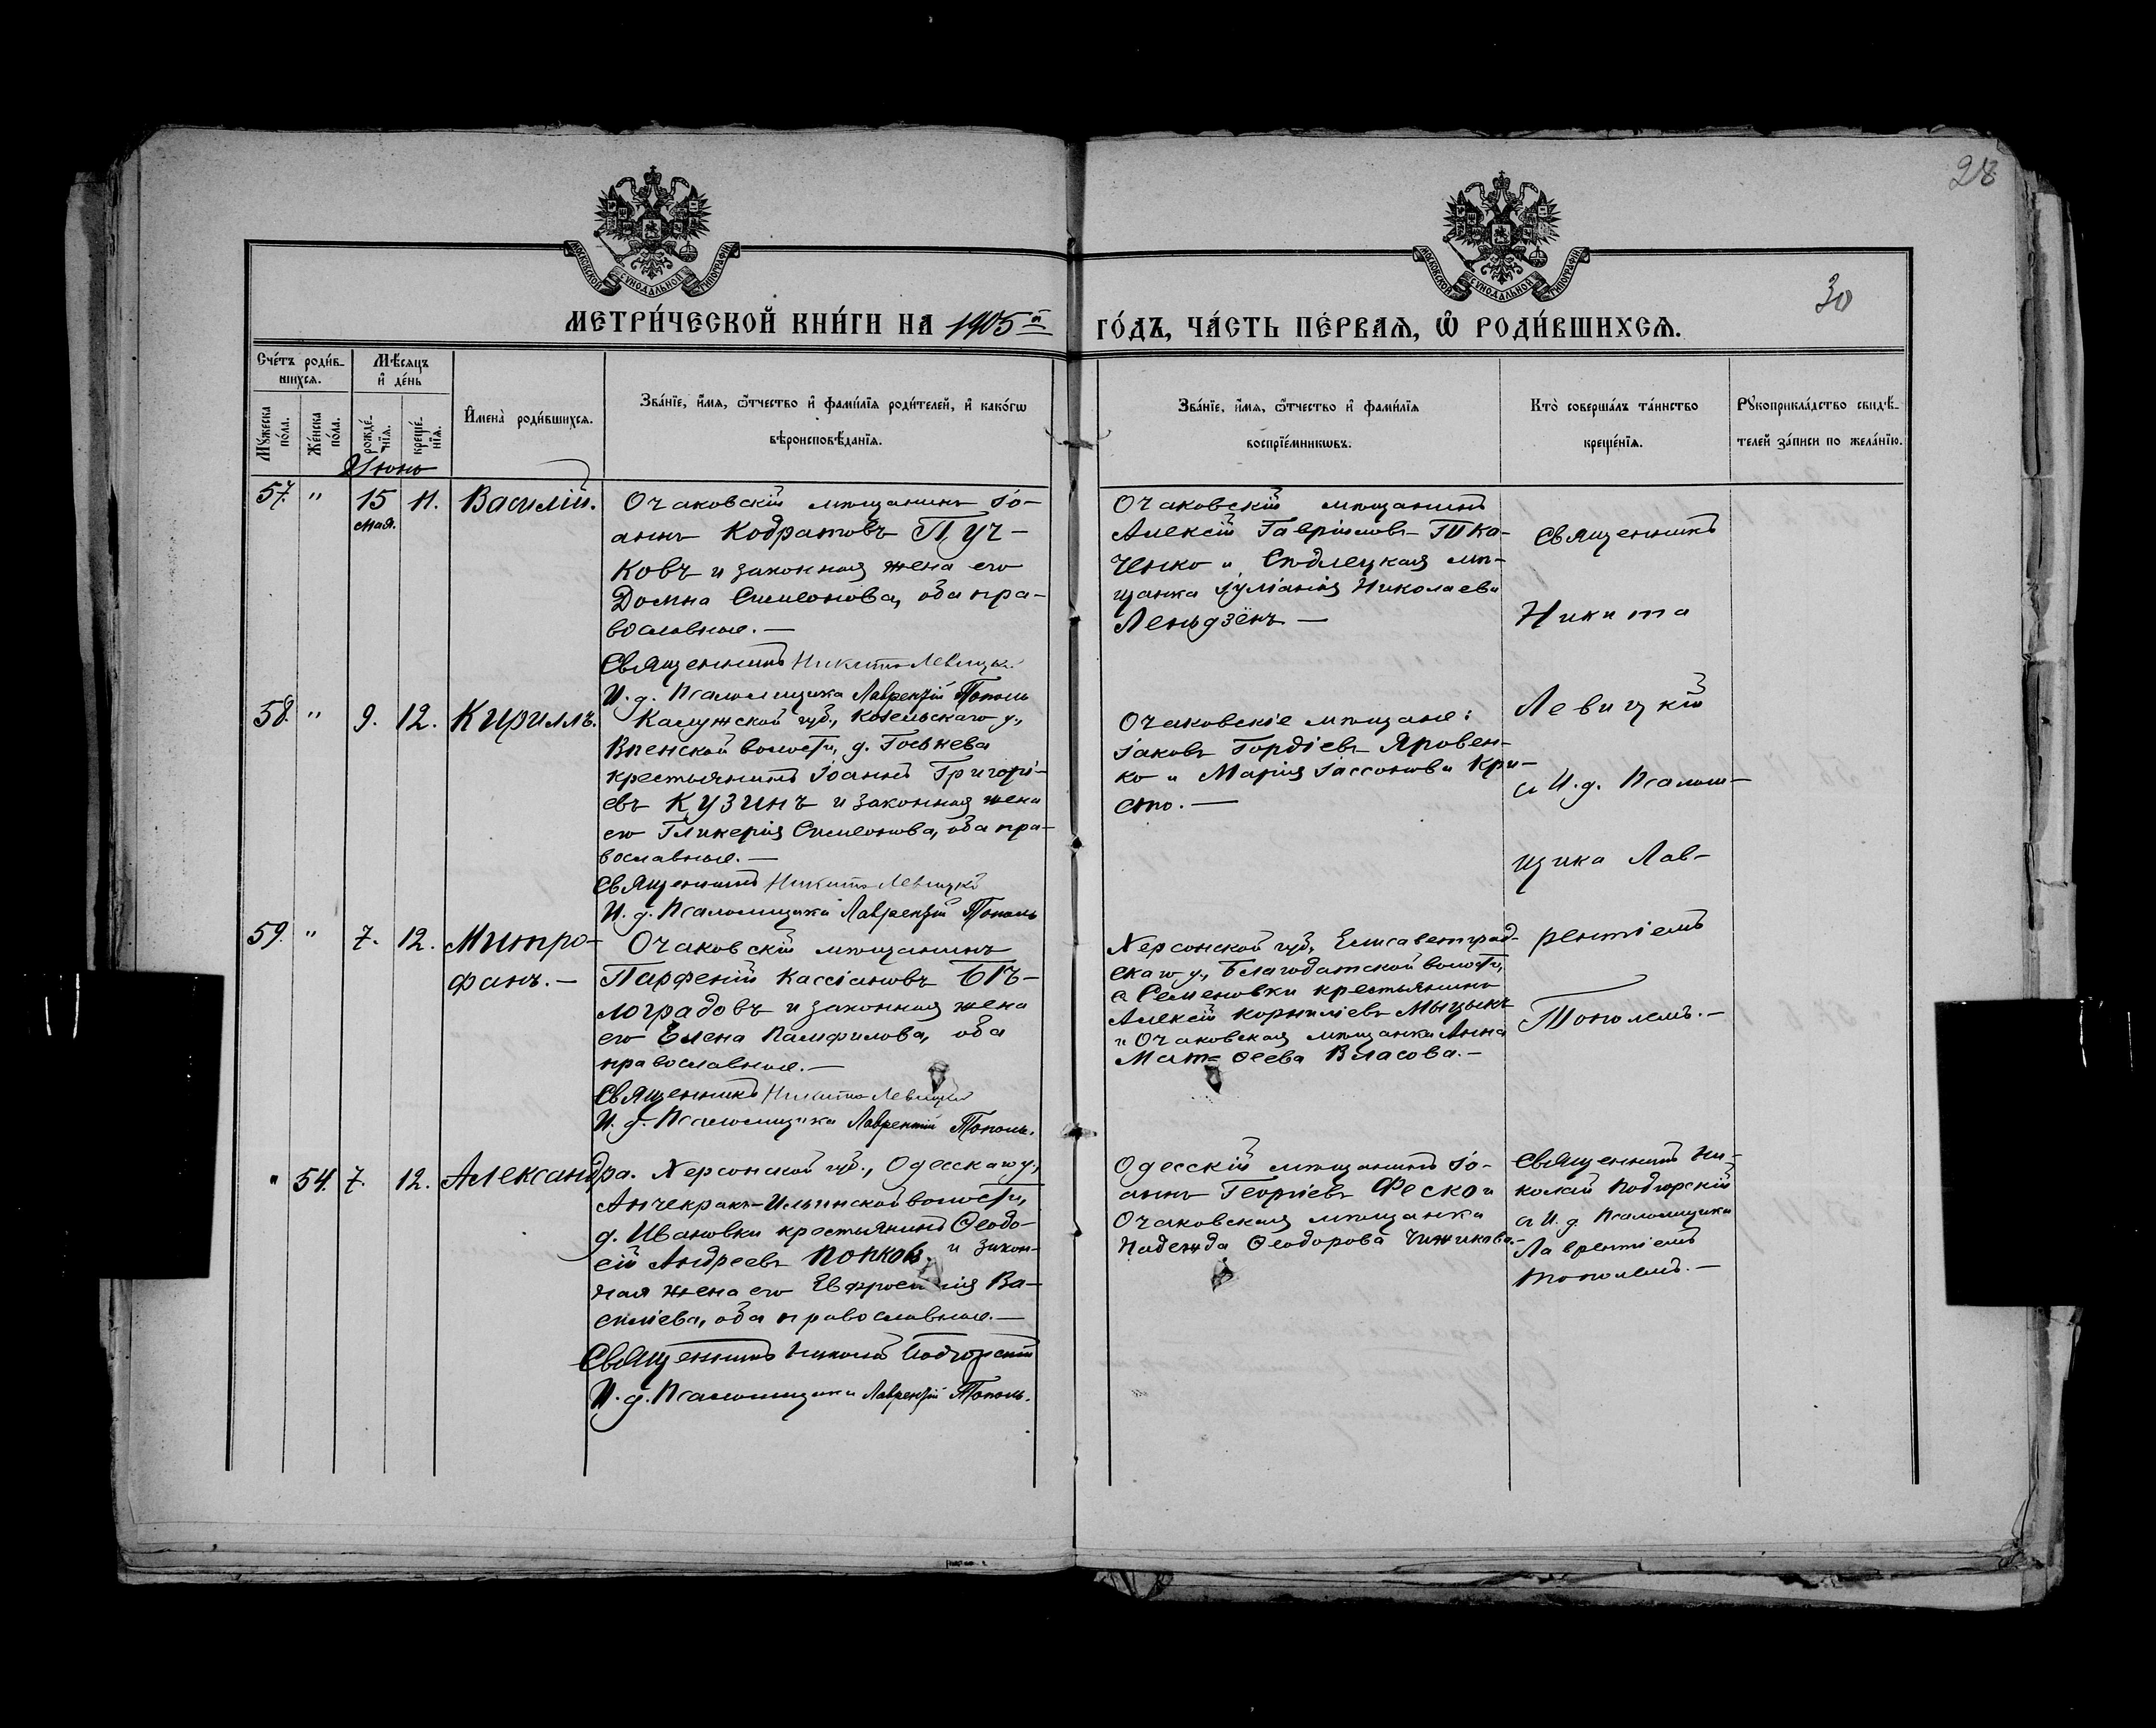 28
30
МОСКОВСКОЙ СѴНОДАЛЬНОЙ ТИПОГРАФІИ
МОСКОВСКОЙ СѴНОДАЛЬНОЙ ТИПОГРАФІИ
МЕТРИ́ЧЕСКОЙ КНИ́ГИ НА 1905й
ГО́ДЪ, ЧА́СТЬ ПЕ́РВАЯ, Ѡ РОДИ́ВШИХСЯ.
Сче́тъ роди́в-
шихся.
Мѣ́сяцъ
и҆ де́нь
Мꙋ́жеска
по́ла.
Же́нска
по́ла.
рожде́-
нїя.
креще́-
нїя.
И҆мена̀ роди́вшихся.
Зва́нїе, и҆́мя, ѻ҆́тчество и҆ фами́лїя роди́телей, и҆ како́гѡ
вѣроисповѣ́данїя.
Зва́нїе, и҆́мя, ѻ҆́тчество и҆ фами́лїя
воспрїе́мникѡвъ.
Кто̀ соверша́лъ та́инство
креще́нїя.
Рꙋкоприкла́дство свидѣ́-
телей за́писи по жела́нїю.
Июнь
57. " 15 мая. 11. Василій.
Очаковскій мѣщанинъ Іо-
аннъ Кодратовъ Пуч-
ковъ и законная жена его
Домна Симеонова, оба пра-
вославные. —
Священникъ Никита Левицкій
И. д. Псаломщика Лаврентій Тополь
Очаковскій мѣщанинъ
Алексій Гавріиловъ Тка-
ченко и Сѣдлецкая мѣ-
щанка Іуліанія Николаева
Леньдзёнъ. —
Священникъ
Никита
Левицкій
съ И. д. Псалом-
щика Лав-
рентіемъ
Тополемъ. —
58. " 9. 12. Кириллъ.
Калужской губ., Козельскаго у.,
Вѣенской волости, д. Госьнева
крестьянинъ Іоаннъ Григорі-
евъ Кузинъ и законная жена
его Гликерія Симеонова, оба пра-
вославные. —
Священникъ Никита Левицкій
И. д. Псаломщика Лаврентій Тополь
Очаковскіе мѣщане:
Іаковъ Гордіевъ Яровен-
ко и Марія Іассонова Кри-
сто. —
59. " 7. 12. Митро-
фанъ. —
Очаковскій мѣщанинъ
Парфеній Кассіановъ Бѣ-
лоградовъ и законная жена
его Елена Памфилова, оба
православные. —
Священникъ Никита Левицкій
И. д. Псаломщика Лаврентій Тополь.
Херсонской губ., Елисаветград-
скаго у., Благодатской волости,
с. Семеновки крестьянинъ
Алексій Корниліевъ Мыцыкъ
и Очаковская мѣщанка Анна
Матѳеева Власова. —
" 54. 7. 12. Александра.
Херсонской губ., Одесскаго у.,
Анчекракъ-Ильинской волости,
д. Ивановки крестьянинъ Ѳеодо-
сій Андреевъ Попковъ и закон-
ная жена его Евфросинія Ва-
силіева, оба православные. —
Священникъ Николай Подгорскій
И. д. Псаломщика Лаврентій Тополь.
Одесскій мѣщанинъ Іо-
аннъ Георгіевъ Феско и
Очаковская мѣщанка
Надежда Ѳеодорова Чижикова. —
Священникъ Ни-
колай Подгорскій
съ И. д. Псаломщика
Лаврентіемъ
Тополемъ. —